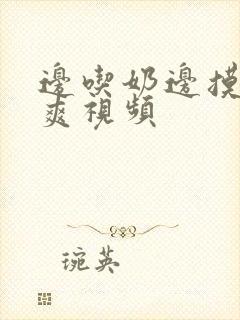 邊喫奶邊摸
爽視頻
琬英